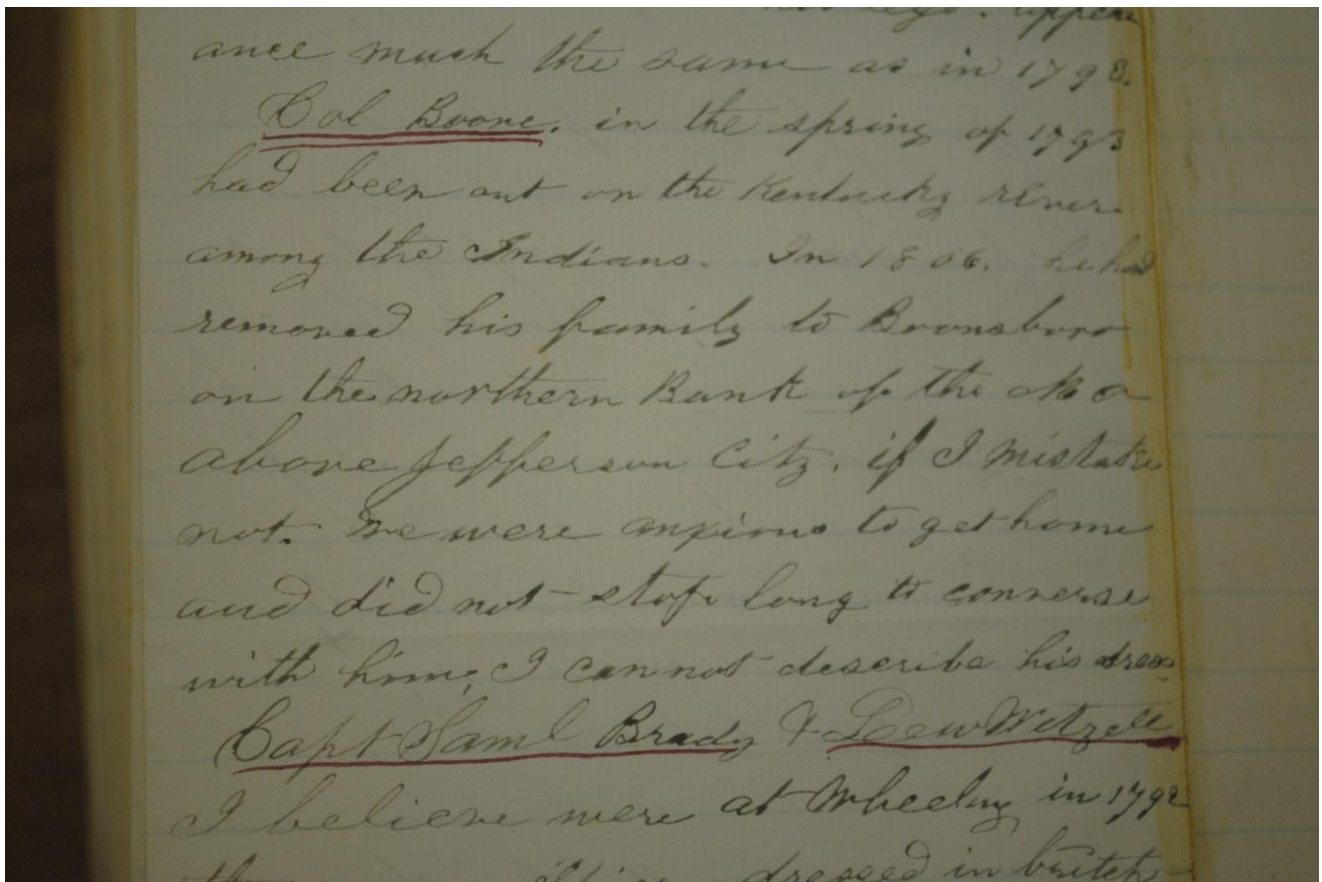 ance much the same as in 1793.
Col Boone, in the spring of 1793
had been out on the Kentucky river
among the Indians. In 1806. he had
removed his family to Boonsboro
on the northern Bank of the Mo
above Jefferson City. if I mistake
not. We were anxious to get home
and did not stop long to converse
with him, I can not describe his dress
Capt Saml Brady & Lew Wetzell
I believe were at Wheeling in 1792
dressed in britch-